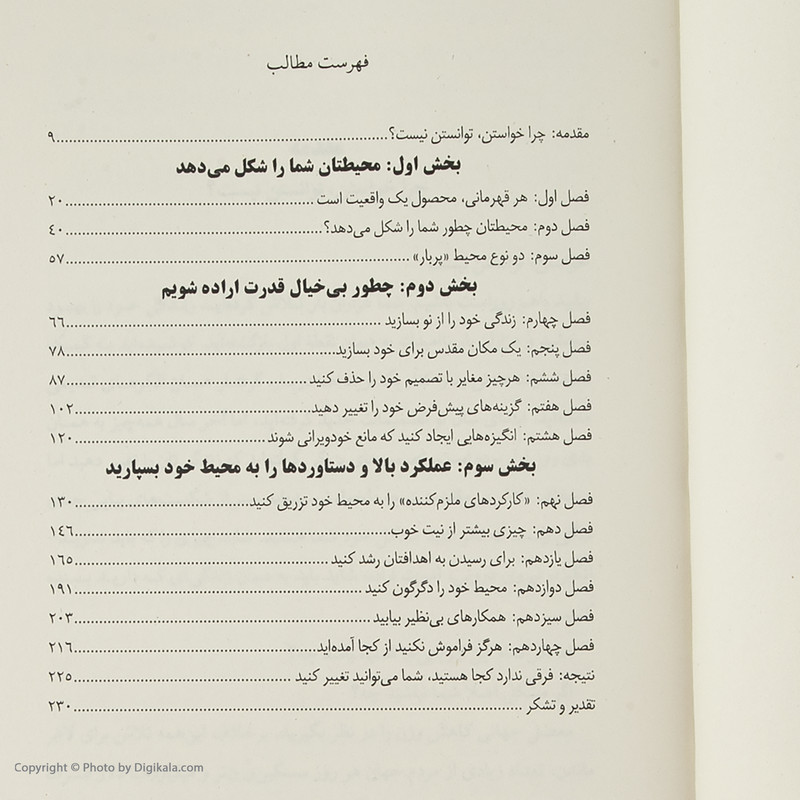 فهرست مطالب
مقدمه: چرا خواستن، توانستن نیست؟..........۹
بخش اول: محیطتان شما را شکل می‌دهد
فصل اول: هر قهرمانی، محصول یک واقعیت است..........۲۰
فصل دوم: محیطتان چطور شما را شکل می‌دهد؟..........۴۰
فصل سوم: دو نوع محیط «پربار»..........۵۷
بخش دوم: چطور بی‌خیال قدرت اراده شویم
فصل چهارم: زندگی خود را از نو بسازید..........۶۶
فصل پنجم: یک مکان مقدس برای خود بسازید..........۷۸
فصل ششم: هرچیز مغایر با تصمیم خود را حذف کنید..........۸۷
فصل هفتم: گزینه‌های پیش‌فرض خود را تغییر دهید..........۱۰۲
فصل هشتم: انگیزه‌هایی ایجاد کنید که مانع خودویرانی شوند..........۱۲۰
بخش سوم: عملکرد بالا و دستاوردها را به محیط خود بسپارید
فصل نهم: «کارکردهای ملزم‌کننده» را به محیط خود تزریق کنید..........۱۳۰
فصل دهم: چیزی بیشتر از نیت خوب..........۱۴۶
فصل یازدهم: برای رسیدن به اهدافتان رشد کنید..........۱۶۵
فصل دوازدهم: محیط خود را دگرگون کنید..........۱۹۱
فصل سیزدهم: همکارهای بی‌نظیر بیابید..........۲۰۳
فصل چهاردهم: هرگز فراموش نکنید از کجا آمده‌اید..........۲۱۶
نتیجه: فرقی ندارد کجا هستید، شما می‌توانید تغییر کنید..........۲۲۵
تقدیر و تشکر..........۲۳۰
Copyright © Photo by Digikala.com